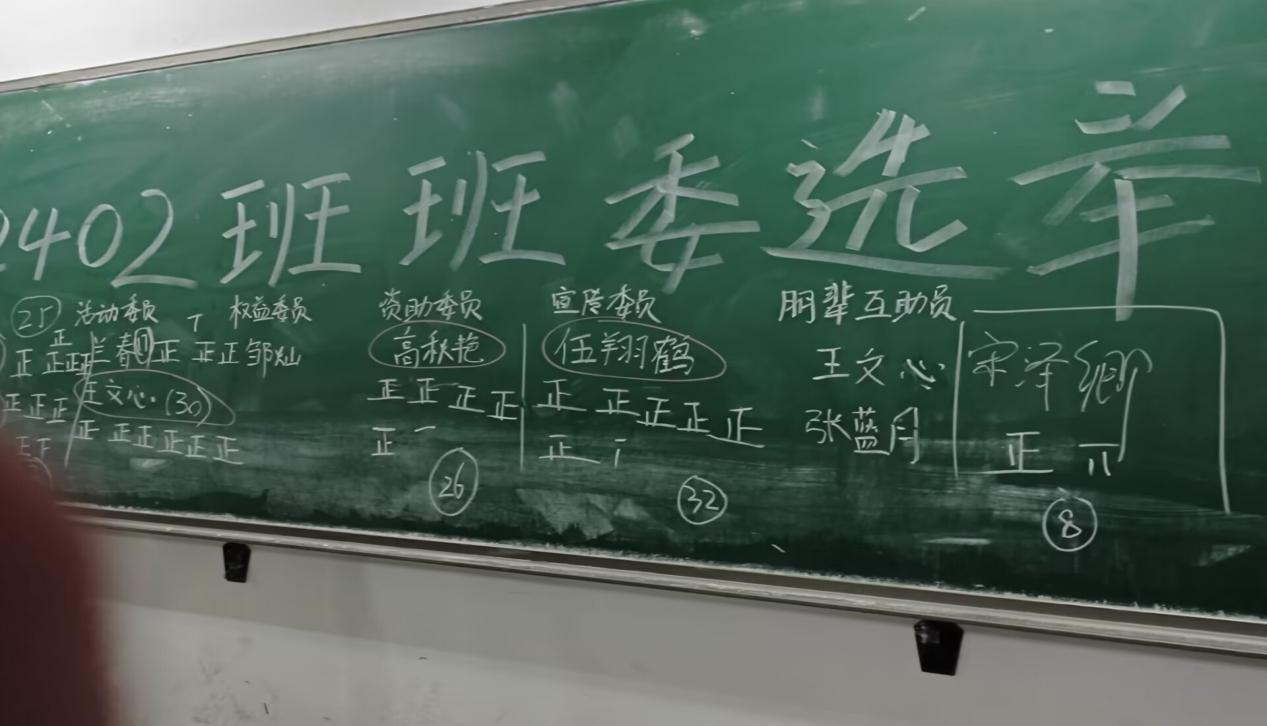 2402班班委选举
25 活动委员 权益委员 资助委员 宣传委员 朋辈互助员
正 正正 兰春 正 正正 邹灿 高秋艳 伍翔鹤 王文心 宋泽卿
正正正 王文心(30) 正正正正 正正正正正 张蓝月 正
正正 正正正正正正 正一 正
26 32 8